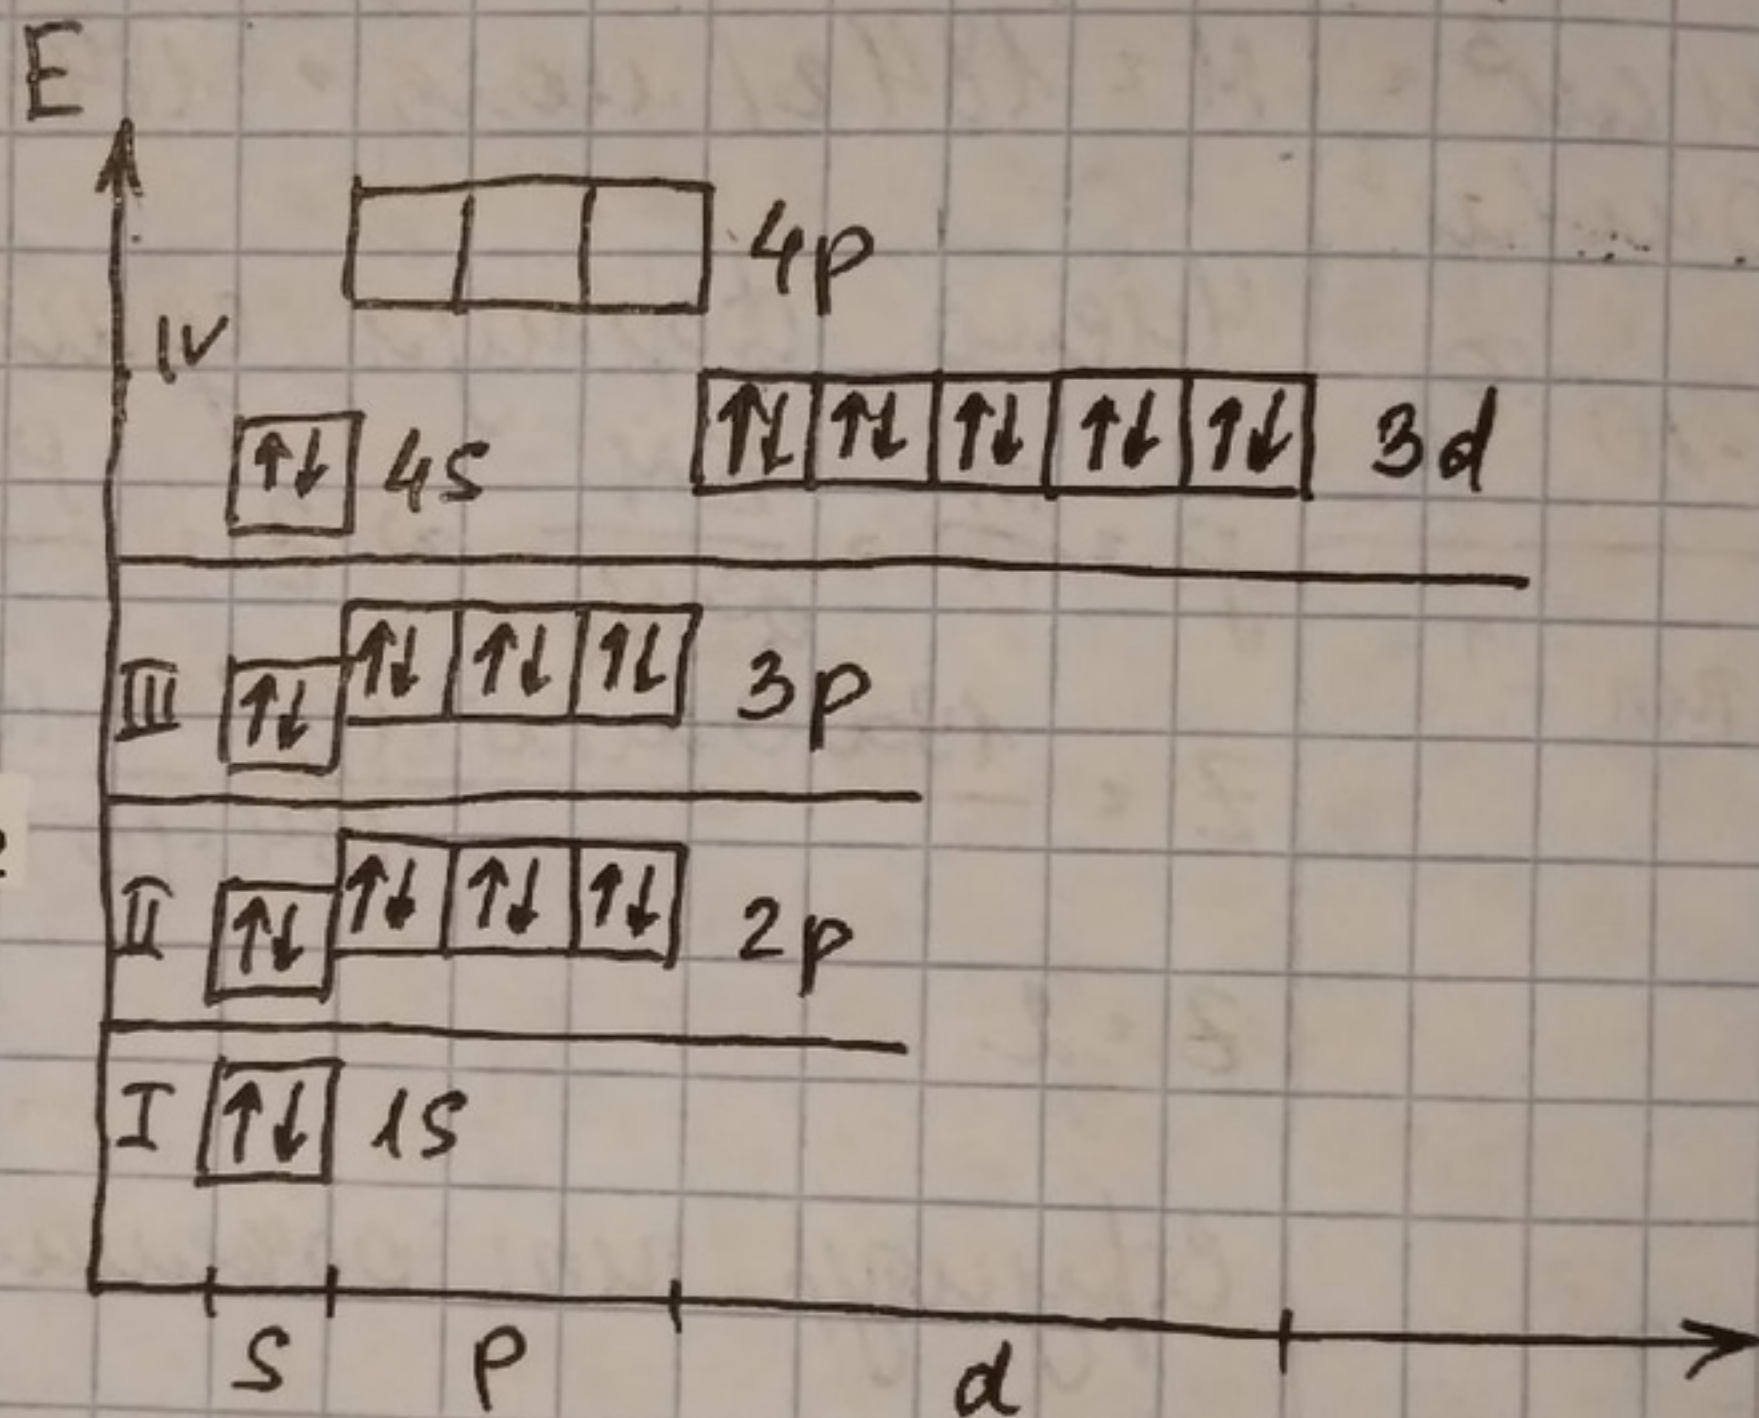 E
4p
IV
4s
3d
III
3p
II
2p
I
1s
s
p
d